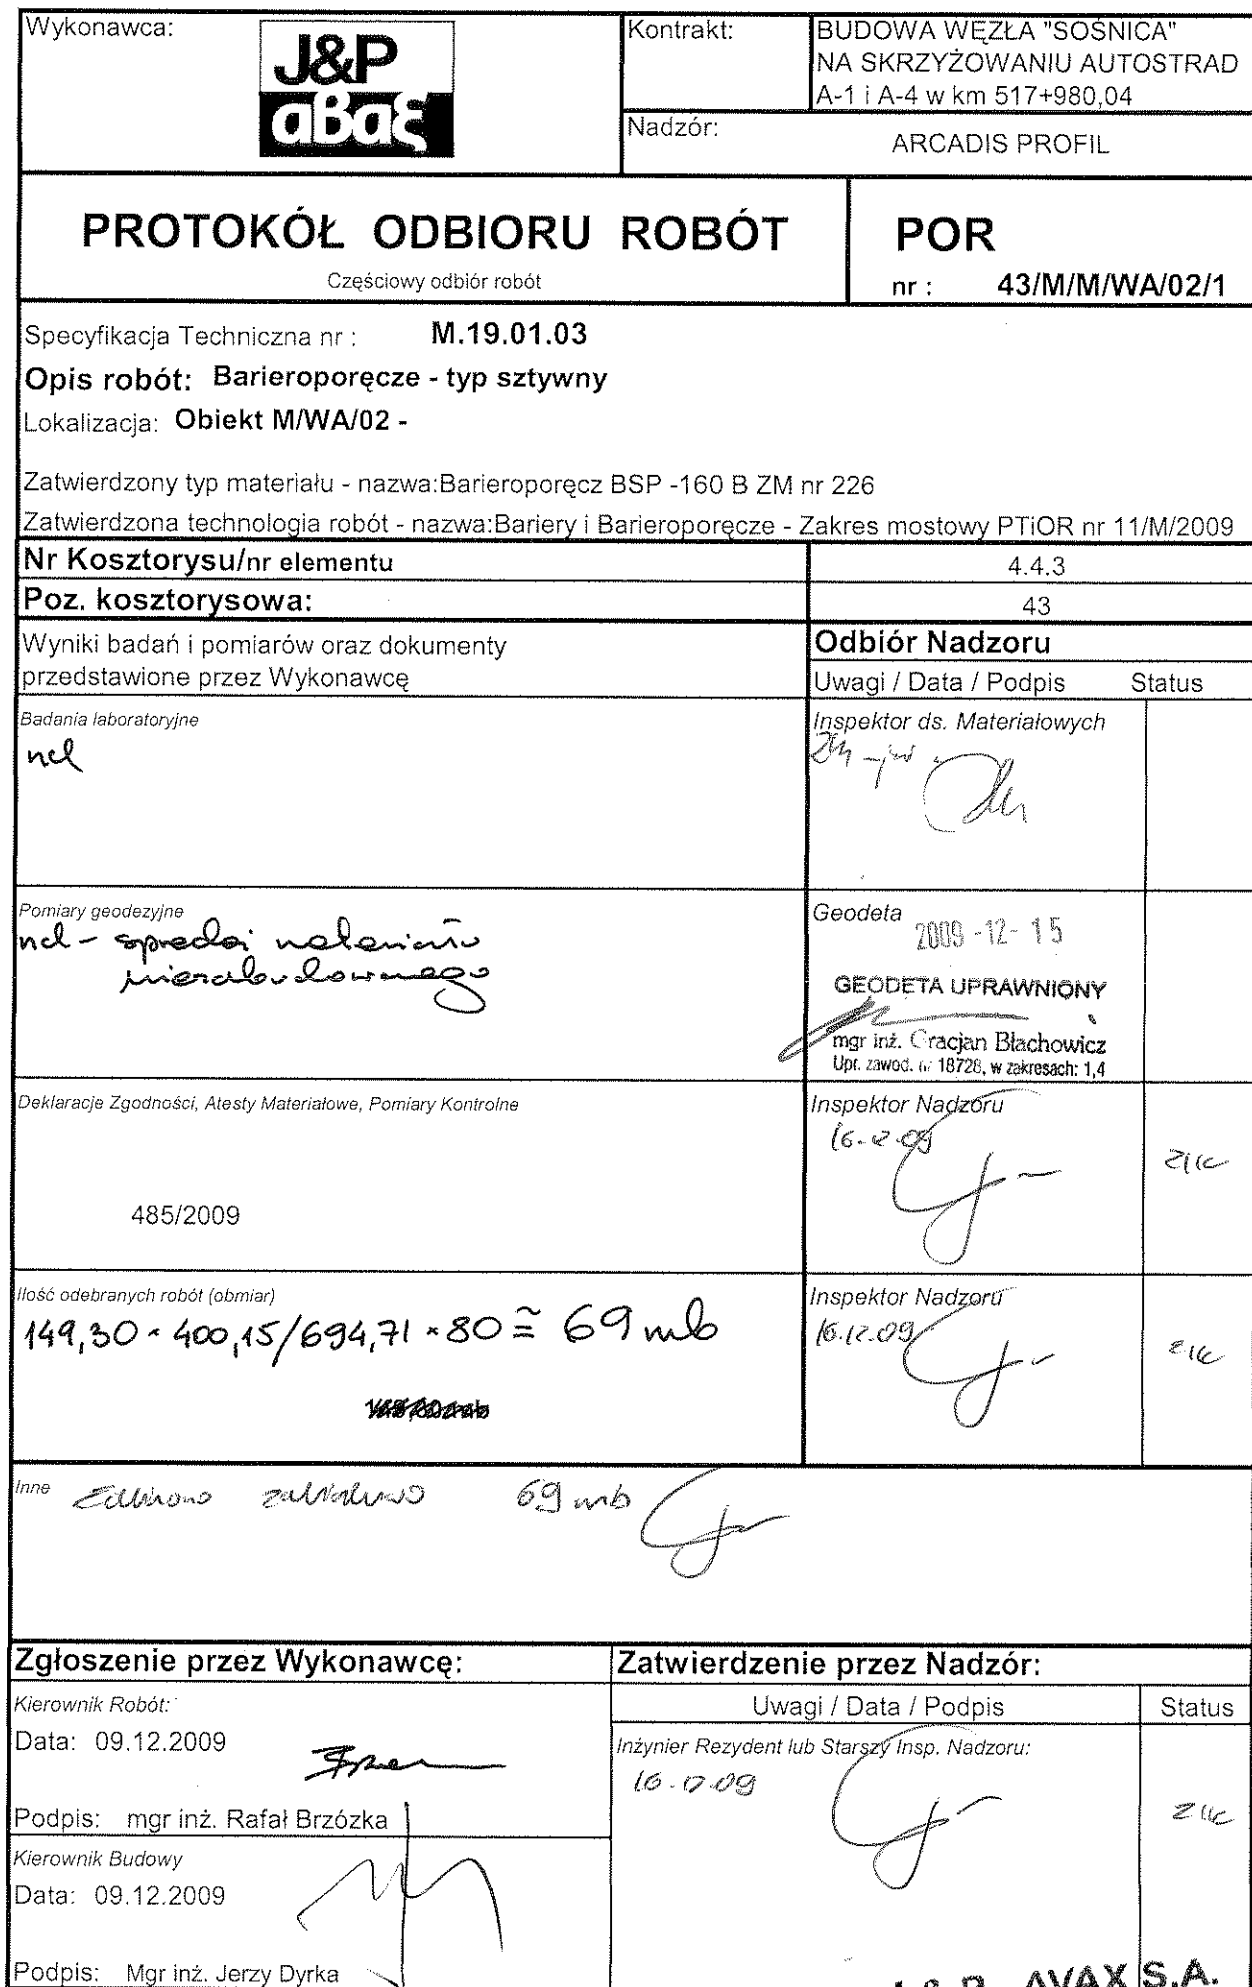 Wykonawca:
J&P
aBaξ
Kontrakt:
BUDOWA WĘZŁA "SOŚNICA"
NA SKRZYŻOWANIU AUTOSTRAD
A-1 i A-4 w km 517+980,04
Nadzór:
ARCADIS PROFIL
PROTOKÓŁ ODBIORU ROBÓT
Częściowy odbiór robót
POR
nr : 43/M/M/WA/02/1
Specyfikacja Techniczna nr : M.19.01.03
Opis robót: Barieroporęcze - typ sztywny
Lokalizacja: Obiekt M/WA/02 -
Zatwierdzony typ materiału - nazwa:Barieroporęcz BSP -160 B ZM nr 226
Zatwierdzona technologia robót - nazwa:Bariery i Barieroporęcze - Zakres mostowy PTiOR nr 11/M/2009
Nr Kosztorysu/nr elementu 4.4.3
Poz. kosztorysowa: 43
Wyniki badań i pomiarów oraz dokumenty
przedstawione przez Wykonawcę
Odbiór Nadzoru
Uwagi / Data / Podpis Status
Badania laboratoryjne
nd
Inspektor ds. Materiałowych
Pomiary geodezyjne
nd -
Geodeta
2009 -12- 15
GEODETA UPRAWNIONY
mgr inż. Gracjan Błachowicz
Upr. zawod. nr 18728, w zakresach: 1,4
Deklaracje Zgodności, Atesty Materiałowe, Pomiary Kontrolne
485/2009
Inspektor Nadzoru
16.12.09
Ilość odebranych robót (obmiar)
149,30 * 400,15/694,71 * 80 ≅ 69 mb
Inspektor Nadzoru
16.12.09
Inne
69 mb
Zgłoszenie przez Wykonawcę:
Zatwierdzenie przez Nadzór:
Kierownik Robót:
Data: 09.12.2009
Podpis: mgr inż. Rafał Brzózka
Uwagi / Data / Podpis Status
Inżynier Rezydent lub Starszy Insp. Nadzoru:
16.12.09
Kierownik Budowy
Data: 09.12.2009
Podpis: Mgr inż. Jerzy Dyrka
J & P - AVAX S.A.